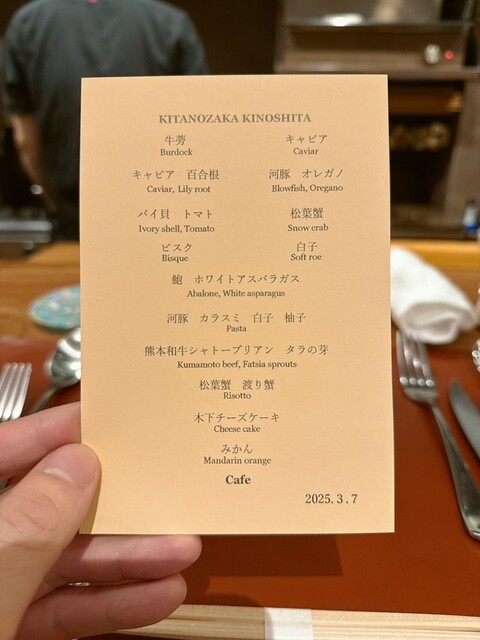 KITANOZAKA KINOSHITA
牛蒡 キャビア
Burdock Caviar
キャビア 百合根 河豚 オレガノ
Caviar, Lily root Blowfish, Oregano
バイ貝 トマト 松葉蟹
Ivory shell, Tomato Snow crab
ビスク 白子
Bisque Soft roe
鮑 ホワイトアスパラガス
Abalone, White asparagus
河豚 カラスミ 白子 柚子
Pasta
熊本和牛シャトーブリアン タラの芽
Kumamoto beef, Fatsia sprouts
松葉蟹 渡り蟹
Risotto
木下チーズケーキ
Cheese cake
みかん
Mandarin orange
Cafe
2025. 3. 7